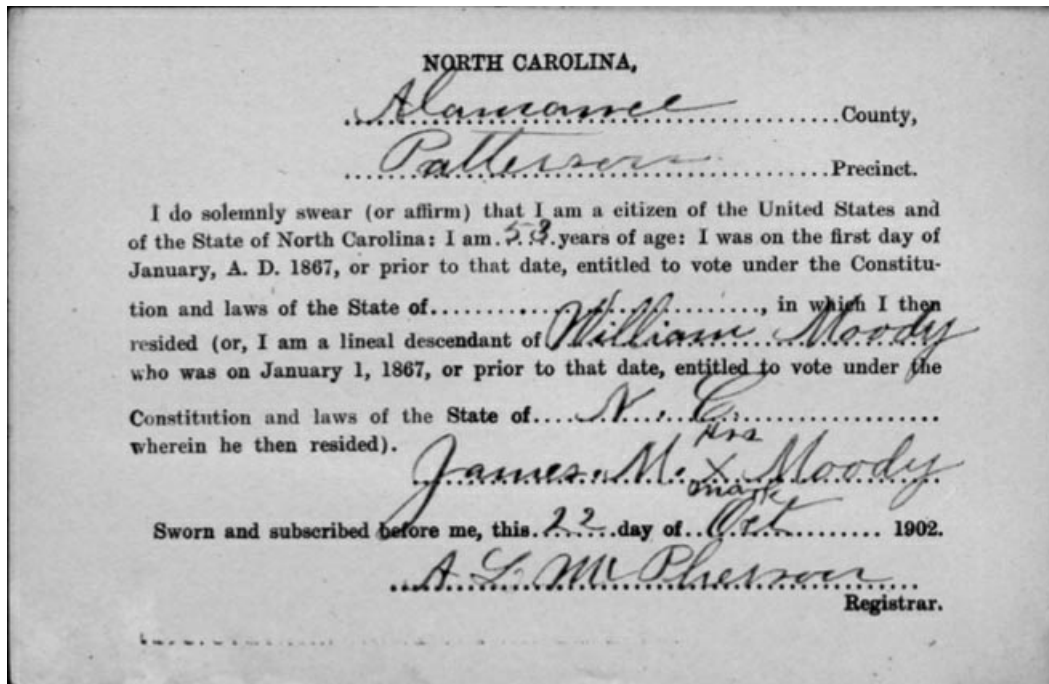 NORTH CAROLINA,
Alamance County,
Patterson Precinct.
I do solemnly swear (or affirm) that I am a citizen of the United States and
of the State of North Carolina: I am 53 years of age: I was on the first day of
January, A. D. 1867, or prior to that date, entitled to vote under the Constitu-
tion and laws of the State of...................................., in which I then
resided (or, I am a lineal descendant of William Moody
who was on January 1, 1867, or prior to that date, entitled to vote under the
Constitution and laws of the State of N. C.
wherein he then resided).
his
James M. X Moody
mark
Sworn and subscribed before me, this 22 day of Oct 1902.
A L McPherson
Registrar.